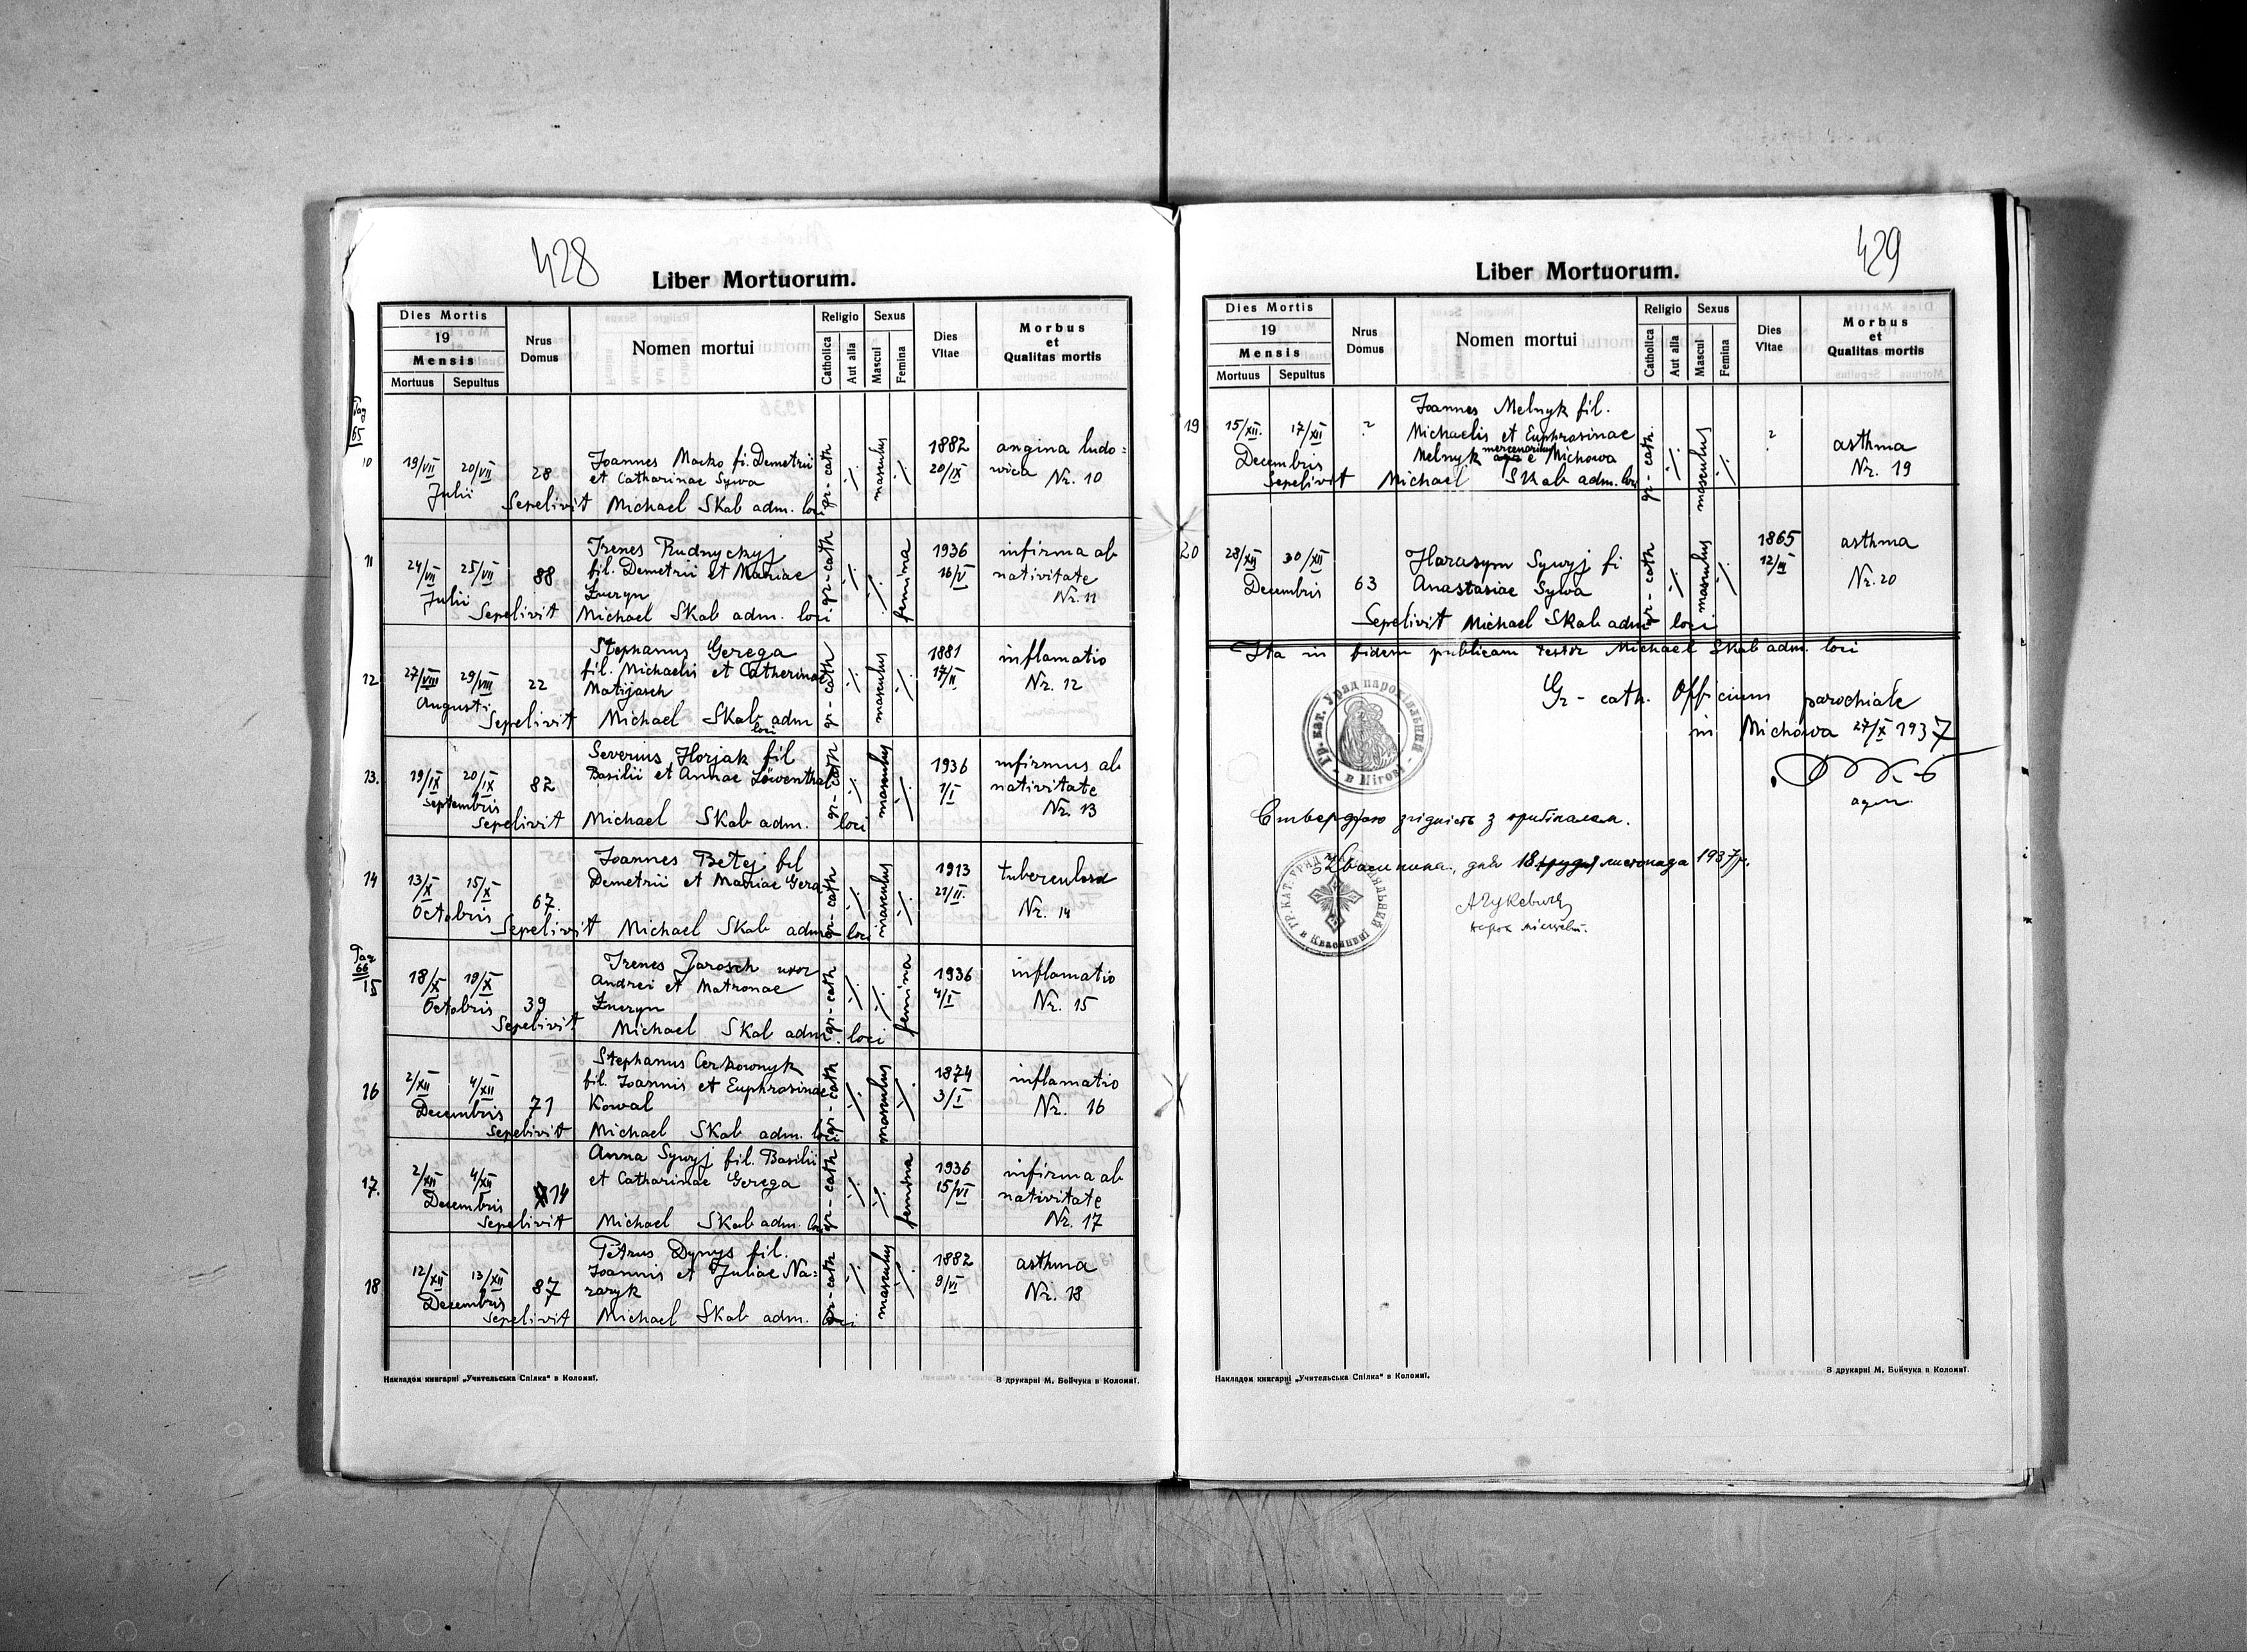 428
Liber Mortuorum.
Dies Mortis
19
Mensis
Mortuus Sepultus
Nrus Domus
Nomen mortui
Religio
Catholica
Aut alia
Sexus
Mascul
Femina
Dies Vitae
Morbus
et
Qualitas mortis
Pag 65
10 19/VII 20/VII 28 Joannes Macko fi. Demetrii gr-cath ./. masculus ./. 1882 20/IX angina ludo=
Julii et Catharinae Sywa wica Nr. 10
Sepelivit Michael Skab adm. loci
11 24/VII 25/VII 88 Irenes Rudnyckyj gr-cath ./. ./. femina 1936 16/V infirma ab
Julii fil. Demetrii et Mariae nativitate
Zweryn Nr. 11
Sepelivit Michael Skab adm. loci
12 27/VIII 29/VIII 22 Stephanus Gerega gr-cath ./. masculus ./. 1881 17/II inflamatio
Augusti fil. Michaelis et Catherinae Nr. 12
Matijasch
Sepelivit Michael Skab adm loci
13. 19/IX 20/IX 82 Severius Horjak fil gr-cath ./. masculus ./. 1936 1/I infirmus ab
Septembris Basilii et Annae Löwenthal nativitate
Nr. 13
Sepelivit Michael Skab adm. loci
14 13/X 15/X 67. Joannes Betej fil gr-cath ./. masculus ./. 1913 21/II. tuberculosa
Octobris Demetrii et Mariae Gera Nr. 14
Sepelivit Michael Skab adm loci
Pag 66
15 18/X 19/X 39 Irenes Jarosch uxor gr-cath ./. ./. femina 1936 4/I inflamatio
Octobris Andrei et Matronae Nr. 15
Zweryn
Sepelivit Michael Skab adm. loci
16 2/XII 4/XII 71 Stephanus Cerkownyk gr-cath ./. masculus ./. 1874 3/I inflamatio
Decembris fil. Joannis et Euphrosinae Nr. 16
Kowal
Sepelivit Michael Skab adm. loci
17. 2/XII 4/XII 14 Anna Sywyj fil. Basilii gr-cath ./. ./. femina 1936 15/VI infirma ab
Decembris et Catharinae Gerega nativitate
Sepelivit Michael Skab adm. loci Nr. 17
18 12/XII 13/XII 87 Petrus Dynys fil. gr-cath ./. masculus ./. 1882 9/VI asthma
Decembris Joannis et Juliae Na= Nr. 18
zaryk
Sepelivit Michael Skab adm. loci
Накладом книгарні „Учительська Спілка" в Коломиї. З друкарні М. Бойчука в Коломиї.
429
Liber Mortuorum.
Dies Mortis
19
Mensis
Mortuus Sepultus
Nrus Domus
Nomen mortui
Religio
Catholica
Aut alia
Sexus
Mascul
Femina
Dies Vitae
Morbus
et
Qualitas mortis
19 15/XII. 17/XII ? Joannes Melnyk fil. gr-cath. ./. masculus ./. ? asthma
Decembris Michaelis et Euphrosinae Nr. 19
Melnyk mercenarius e Michowa
Sepelivit Michael Skab adm. loci
20 28/XII 30/XII 63 Harasym Sywyj fi gr-cath ./. masculus ./. 1865 12/III asthma
Decembris Anastasiae Sywa Nr. 20
Sepelivit Michael Skab adm loci
Ita in fidem publicam testor Michael Skab adm. loci
Gr-cath. Officium parochiale
in Michowa 27/X 1937
Гр. кат. Уряд парохіяльний в Мігові
Стверджую згідність з оригіналом.
Квасинина, дня 18 грудня листопада 1937р.
ГР. КАТ. УРЯД ПАРОХІЯЛЬНИЙ в Квасинині
Накладом книгарні „Учительська Спілка" в Коломиї. З друкарні М. Бойчука в Коломиї.